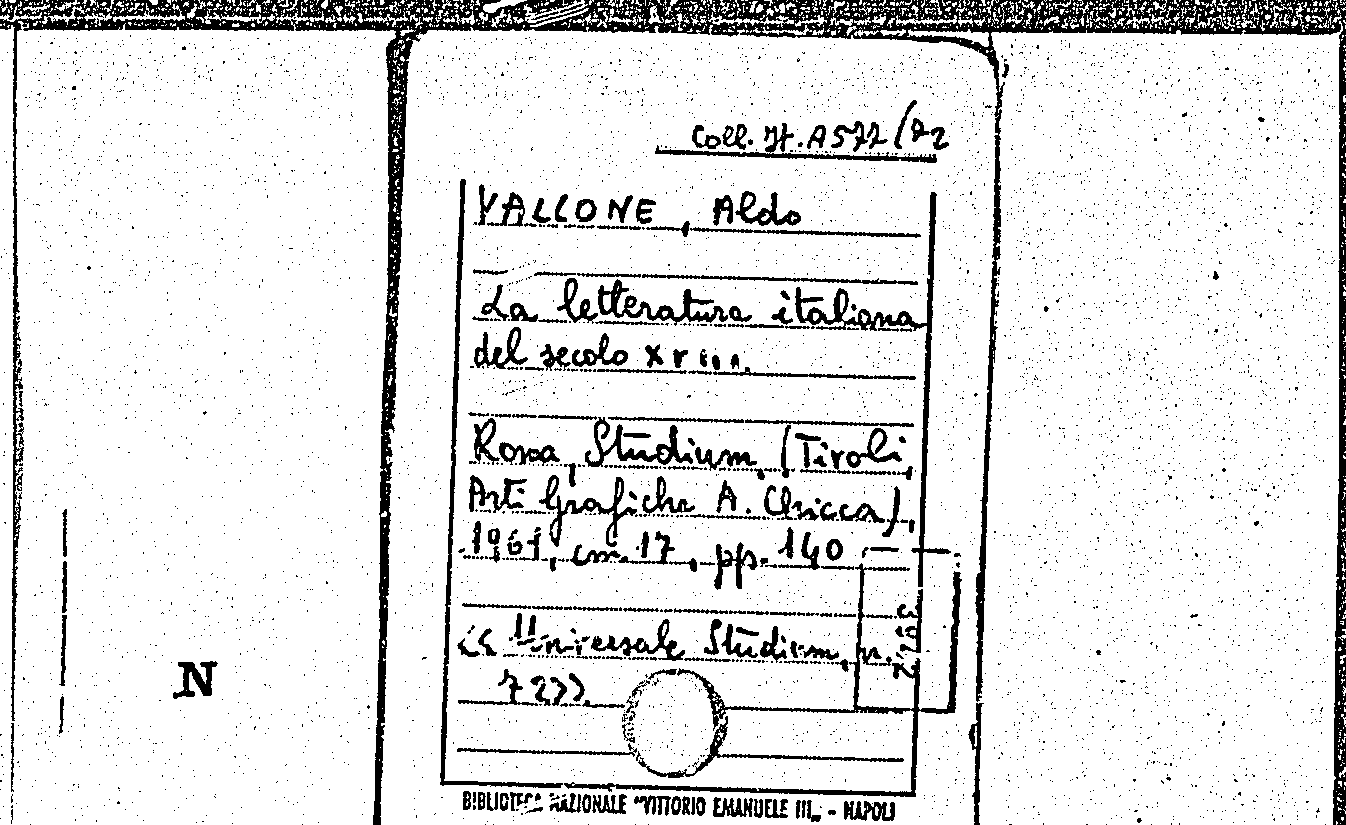 Coll. It. A 572/72
VALLONE, Aldo
La letteratura italiana
del secolo XVIII.
Roma, Studium, (Tivoli,
Arti Grafiche A. Chicca),
1961, cm. 17, pp. 140
«Universale Studium, n.
72».
N
BIBLIOTECA NAZIONALE "VITTORIO EMANUELE III„ - NAPOLI